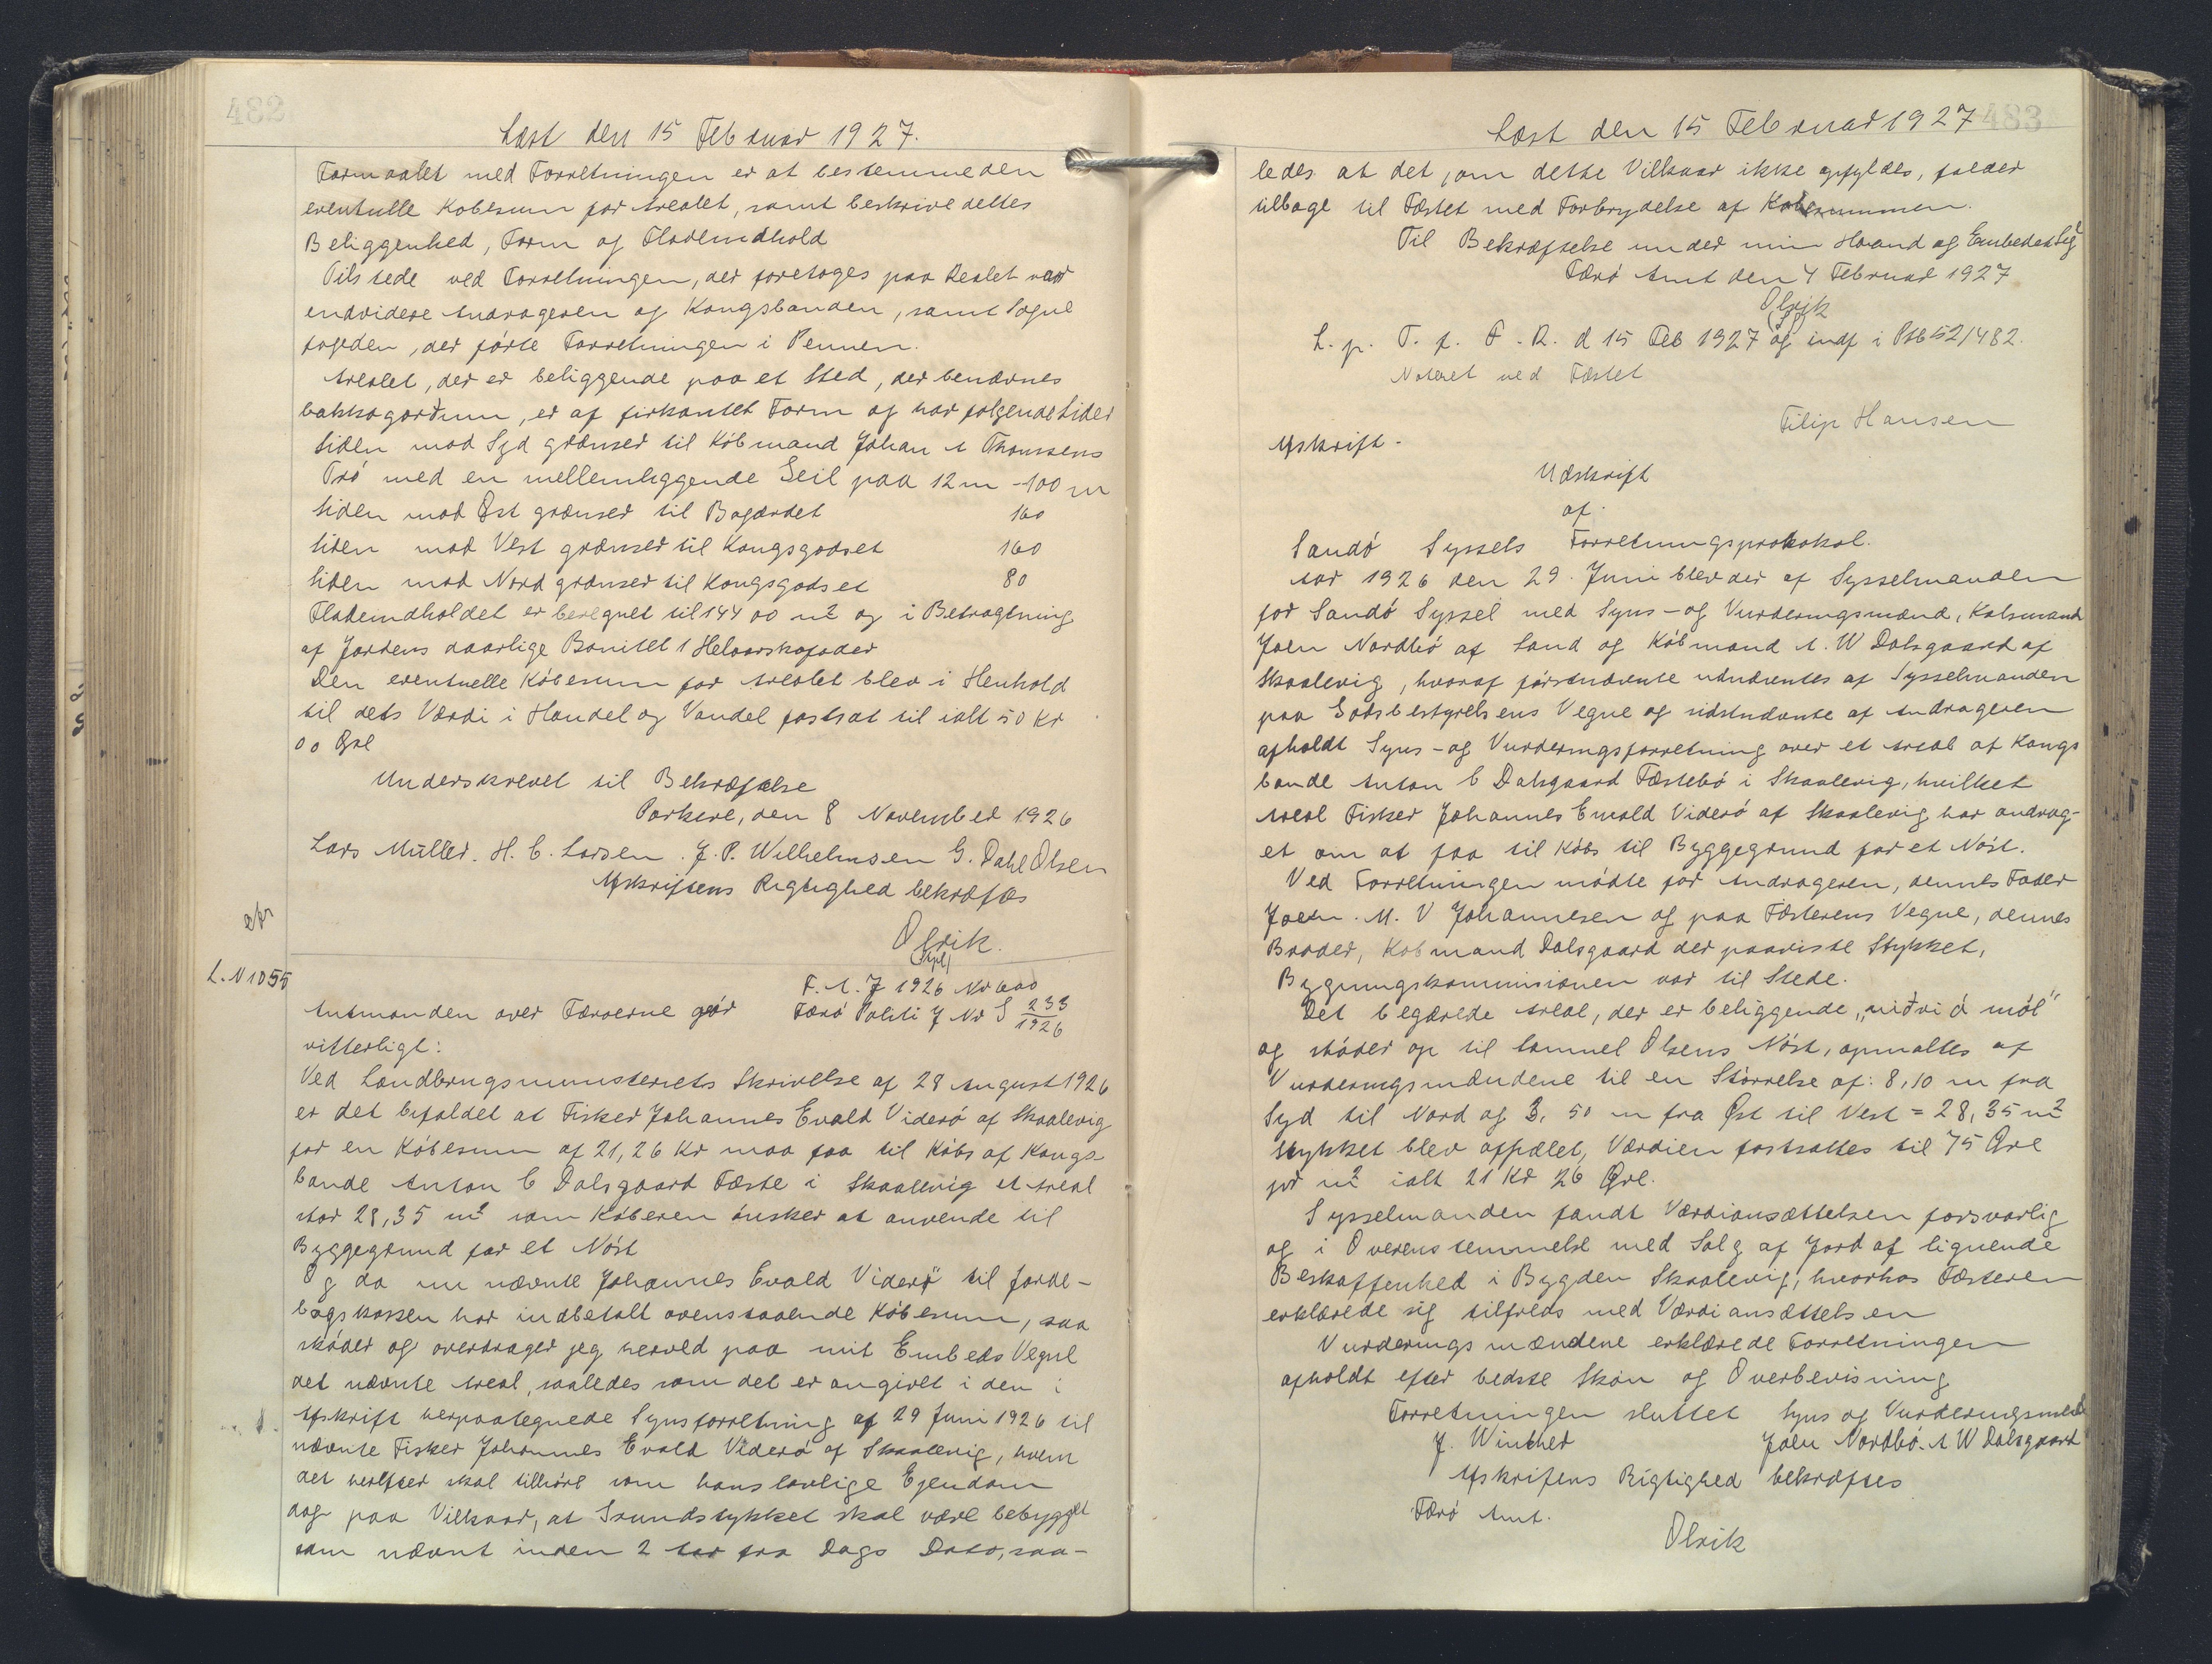 482
Læst den 15 Februar 1927.
Formaalet med Forretningen er at bestemme den
eventuelle Købesum for Arealet, samt beskrive dettes
Beliggenhed, Form og Fladeindhold
Tilstede ved Forretningen, der foretoges paa Arealet var
endvidere Andrageren og Kongsbonden, samt Sogne
fogeden, der førte Forretningen i Pennen.
Arealet, der er beliggende paa et Sted, der benævnes
bakkagarðum, er af firkantet Form og har følgende Sider
Siden mod Syd grænser til Købmand Johan A Thomsens
Trø med en mellemliggende Geil paa 12 m - 100 m
Siden mod Øst grænser til Bøgærdet 160
Siden mod Vest grænser til Kongsgodset 160
Siden mod Nord grænser til Kongsgodset 80
Fladeindholdet er beregnet til 144 00 m2 og i Betragtning
af Jordens daarlige Bonitet 1 Helaarskofoder
Den eventuelle Købesum for Arealet blev i Henhold
til dets Værdi i Handel og Vandel fastsat til ialt 50 Kr
00 Øre
Underskrevet til Bekræftelse
Porkere, den 8 November 1926
Lars Müller. H. C. Larsen. J. P. Wilhelmsen G. Dahl Olsen
Afskriftens Rigtighed bekræftes
Olrik.
L. N 1055
F. A. J 1926 Nr 600
Amtmanden over Færøerne gør Færø Politi J Nr S 233/1926
vitterligt:
Ved Landbrugsministeriets Skrivelse af 28 August 1926
er det bifaldet at Fisker Johannes Evald Viderø af Skaalevig
for en Købesum af 21,26 Kr maa faa til Købs af Kongs-
bonde Anton C Dalsgaard Fæste i Skaalevig et Areal
stor 28,35 m2 som Køberen ønsker at anvende til
Byggegrund for et Nøst
Og da nu nævnte Johannes Evald Viderø til Jorde-
bogskassen har indbetalt ovenstaaende Købesum, saa
skøder og overdrager jeg herved paa mit Embeds Vegne
det nævnte Areal, saaledes som det er angivet i den i
Afskrift herpaategnede Synsforretning af 29 Juni 1926 til
nævnte Fisker Johannes Evald Viderø af Skaalevig, hvem
det herefter skal tilhøre som hans lovlige Ejendom
dog paa Vilkaar, at Grundstykket skal være bebygget
som nævnt inden 2 Aar fra Dags Dato, saa-
483
Læst den 15 Februar 1927
ledes at det, om dette Vilkaar ikke opfyldes, falder
tilbage til Fæstet med Forbrydelse af Købesummen.
Til Bekræftelse under min Haand og Embedets Segl
Færø Amt den 4 Februar 1927
Olrik
L. p. T. f. F. R. d 15 Feb 1927 og indf i Ptb 52/482.
Noteret ved Fæstet
Filip Hansen
Afskrift.
Udskrift
af
Sandø Syssels Forretningsprotokol.
Aar 1926 den 29. Juni blev der af Sysselmanden
for Sandø Syssel med Syns- og Vurderingsmænd, Købmand
Joen Nordbø af Sand og Købmand A. W Dalsgaard af
Skaalevig, hvoraf førstnævnte udnævntes af Sysselmanden
paa Godsbestyrelsens Vegne og sidstnævnte af Andrageren
afholdt Syns- og Vurderingsforretning over et Areal af Kongs
bonde Anton C Dalsgaard Fæstebø i Skaalevig, hvilket
Areal Fisker Johannes Evald Viderø af Skaalevig har andrag-
et om at faa til Købs til Byggegrund for et Nøst.
Ved Forretningen mødte for Andrageren, dennes Fader
Joen. M. V Johannesen og paa Fæsterens Vegne, dennes
Broder, Købmand Dalsgaard der paaviste Stykket,
Bygningskommissionen var til Stede.
Det begærede Areal, der er beliggende „niðri á møl"
og støder op til Samuel Olsens Nøst, opmaltes af
Vurderingsmændene til en Størrelse af: 8,10 m fra
Syd til Nord og 3,50 m fra Øst til Vest = 28,35 m2
Stykket blev afpælet, Værdien fastsattes til 75 Øre
pr m2 ialt 21 Kr 26 Øre.
Sysselmanden fandt Værdiansættelsen forsvarlig
og i Overensstemmelse med Salg af Jord af lignende
Beskaffenhed i Bygden Skaalevig, hvorhos Fæsteren
erklærede sig tilfreds med Værdiansættelsen
Vurderingsmændene erklærede Forretningen
afholdt efter bedste Skøn og Overbevisning
Forretningen sluttet Syns og Vurderingsmænd
J. Winther Joen Nordbø. A W Dalsgaard
Afskriftens Rigtighed bekræftes
Færø Amt.
Olrik